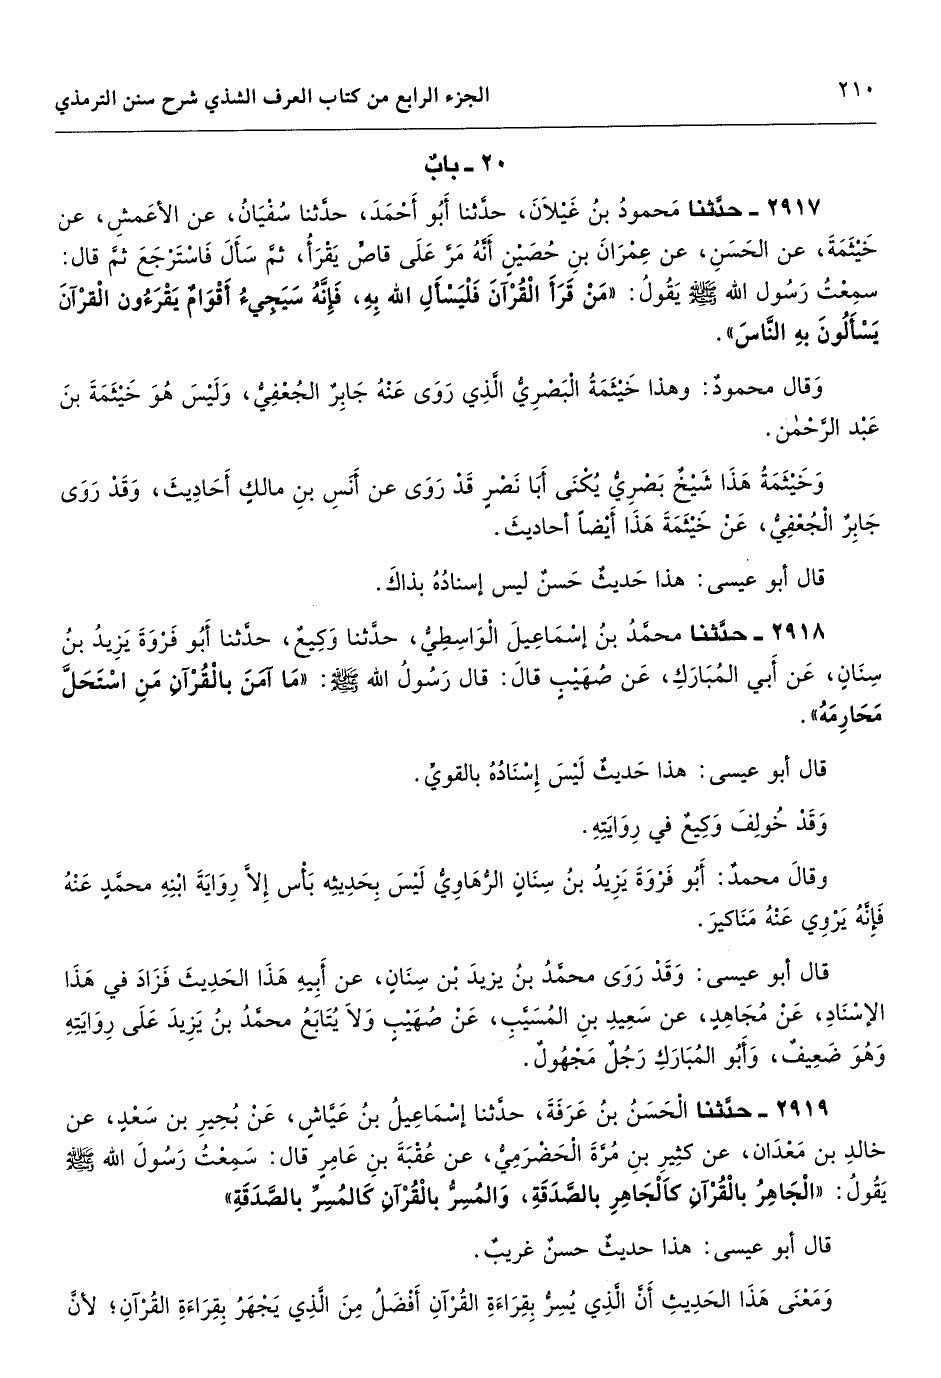 ٢١٠
الجزء الرابع من كتاب العرف الشذي شرح سنن الترمذي
٢٠ ـ بابٌ
٢٩١٧ ـ حدَّثنا مَحمودُ بنُ غَيْلاَنَ، حدَّثنا أَبُو أَحْمَدَ، حدَّثنا سُفْيَانُ، عن الأعْمشِ، عن
خَيْثمَةَ، عن الحَسَنِ، عن عِمْرَانَ بنِ حُصَيْنٍ أنَّهُ مَرَّ عَلَى قاصٍّ يَقْرَأُ، ثمَّ سَأَلَ فَاسْتَرْجَعَ ثم قال:
سمِعْتُ رَسُول الله ﷺ يَقُولُ: «مَنْ قَرَأَ الْقُرْآنَ فَلْيَسْأَلِ الله بِهِ، فَإِنَّهُ سَيَجِيءُ أَقْوَامٌ يَقْرَءُون القْرآنَ
يَسْأَلُونَ بِهِ النَّاسَ».
وَقال محمودٌ: وهذا خَيْثمَةُ الْبَصْرِيُّ الَّذِي رَوَى عَنْهُ جَابِرٌ الجُعْفِيُّ، وَلَيْسَ هُوَ خَيْثمَةَ بنَ
عَبْد الرَّحْمٰن.
وَخَيْثَمَةُ هَذَا شَيْخٌ بَصْرِيٌّ يُكْنَى أبَا نَصْرٍ قَدْ رَوَى عن أنَسِ بنِ مالكٍ أحَادِيثَ، وَقَدْ رَوَى
جَابِرٌ الْجُعْفِيُّ، عَنْ خَيْثَمَةَ هَذَا أَيْضاً أحاديثَ.
قال أبو عيسى: هذا حَديثٌ حَسنٌ ليس إسنادُهُ بذاكَ.
٢٩١٨ ـ حدَّثنا محمَّدُ بنُ إسْمَاعِيلَ الْوَاسِطِيُّ، حدَّثنا وَكِيعٌ، حدَّثنا أَبُو فَرْوَةَ يَزِيدُ بنُ
سِنَانٍ، عَن أَبي المُبَارَكِ، عَن صُهَيْبٍ قالَ: قال رَسُولُ الله ﷺ: «مَا آمَنَ بالْقُرْآنِ مَنِ اسْتَحَلَّ
مَحَارِمَهُ».
قال أبو عيسى: هذا حَديثٌ لَيْسَ إِسْنَادُهُ بالقويِّ.
وَقَدْ خُولِفَ وَكِيعٌ في رِوَايَتِهِ.
وقالَ محمدٌ: أَبُو فَرْوَةَ يَزِيدُ بنُ سِنَانٍ الرُّهَاوِيُّ لَيْسَ بِحَدِيثِه بَأْس إلاَّ رِوَايَةَ ابْنِهِ محمَّدٍ عَنْهُ
فَإِنَّهُ يَرْوِي عَنْهُ مَنَاكيرَ.
قال أبو عيسى: وَقَدْ رَوَى محمَّدُ بنُ يزيدَ بْن سِنَانٍ، عن أبيهِ هَذَا الحَديثَ فَزَادَ في هَذَا
الإسْنَادِ، عَنْ مُجَاهِدٍ، عن سَعِيدِ بنِ المُسَيَّبِ، عَنْ صُهَيْبٍ وَلاَ يُتَابَعُ محمَّدُ بنُ يَزِيدَ عَلَى رِوَايَتِهِ
وَهُوَ ضَعِيفٌ، وَأَبُو المُبَارَكِ رَجُلٌ مَجْهُولٌ.
٢٩١٩ ـ حدَّثنا الْحَسَنُ بنُ عَرَفَةَ، حدَّثنا إسْمَاعِيلُ بنُ عَيَّاشٍ، عَنْ بُحِيرِ بن سَعْدٍ، عن
خالدِ بن مَعْدَان، عن كثِيرِ بنِ مُرَّةَ الْحَضْرَمِيُّ، عن عُقْبَةَ بنِ عَامِرٍ قال: سَمِعْتُ رَسُولَ الله ﷺ
يَقُولُ: «الْجَاهِرُ بالْقُرْآنِ كالْجَاهِرِ بالصَّدَقَةِ، وَالمُسِرُّ بالْقُرْآنِ كَالمُسِرِّ بالصَّدَقَةِ»
قال أبو عيسى: هذا حديثٌ حسنٌ غريبٌ.
وَمَعْنَى هَذَا الحَدِيثِ أنَّ الَّذِي يُسِرُّ بِقِرَاءَةِ القُرْآنِ أَفْضَلُ مِنَ الَّذِي يَجْهَرُ بِقِرَاءَةِ القُرْآنِ؛ لأنَّ